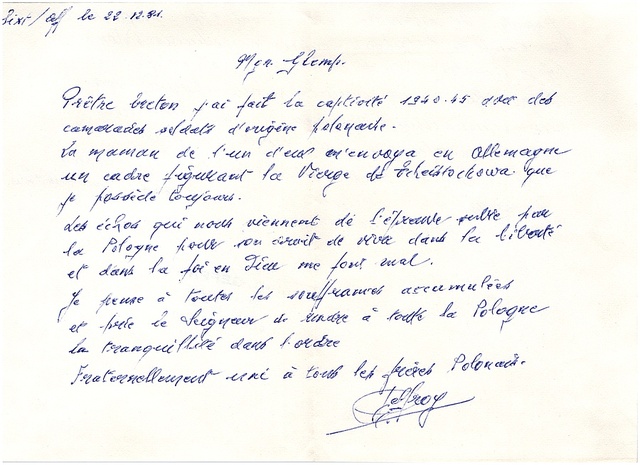 Sixt/Aff le 22.12.81.
Mgr. Glemp.
Prêtre breton j'ai fait la captivité 1940-45 avec des
camarades soldats d'origine polonaise.
La maman de l'un d'eux m'envoya en Allemagne
un cadre figurant la Vierge de Tcheistochowa que
je possède toujours.
Les échos qui nous viennent de l'épreuve subie par
la Pologne pour son droit de vivre dans la liberté
et dans la foi en Dieu me font mal.
Je pense à toutes les souffrances accumulées
et prie le Seigneur de rendre à toute la Pologne
la tranquillité dans l'ordre
Fraternellement uni à tous les frères Polonais.